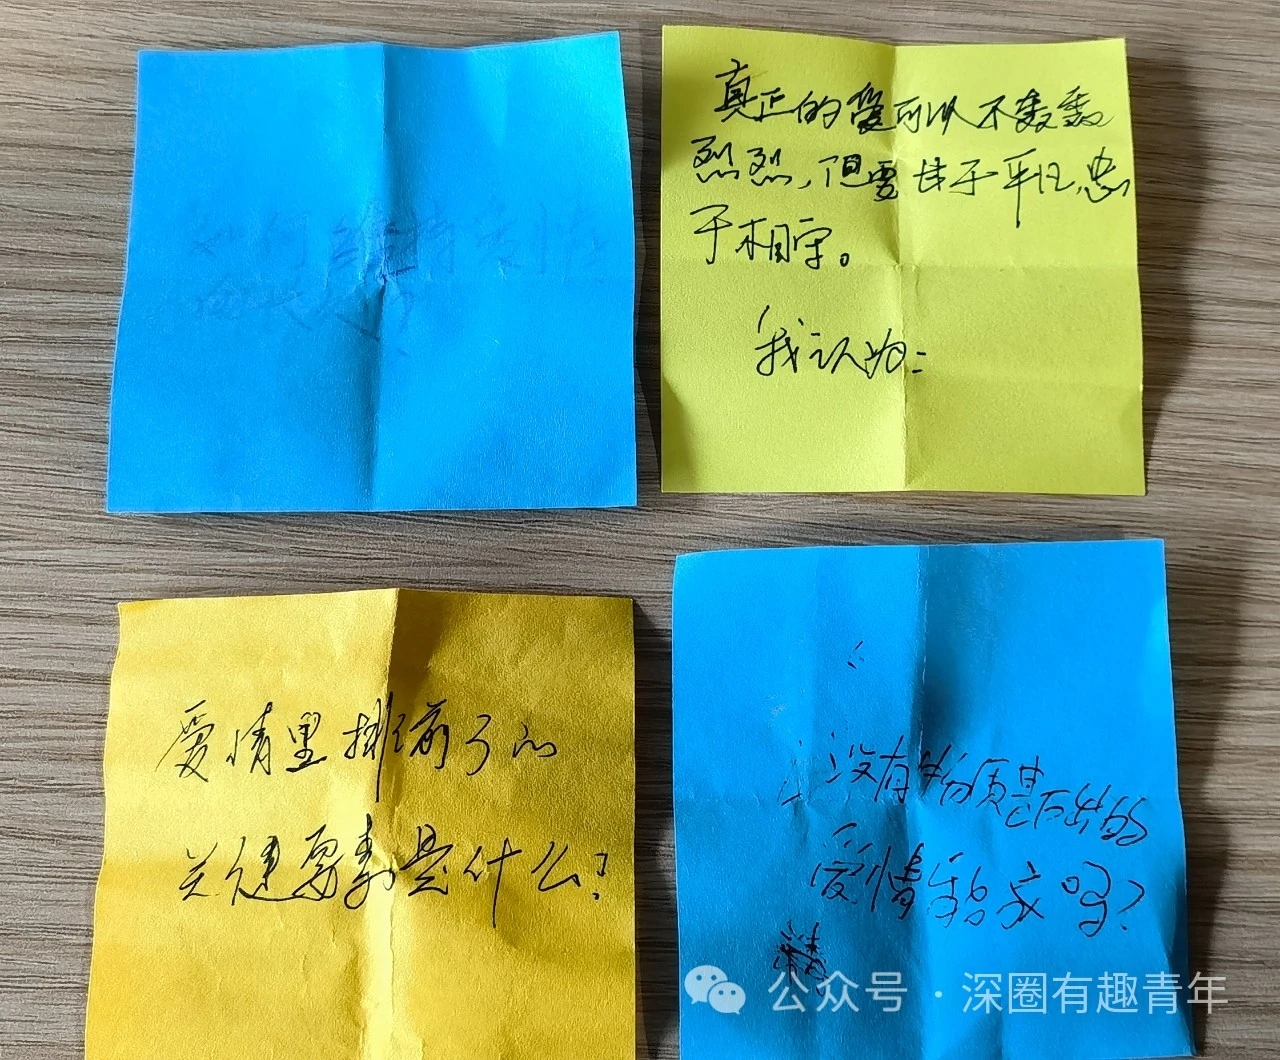 如何维持爱情
的长久？
真正的爱可以不轰轰
烈烈，但要甘于平凡，忠
于相守。
我认为：
爱情里排前3的
关键要素是什么？
没有物质基石出的
爱情牢固吗？
公众号·深圈有趣青年